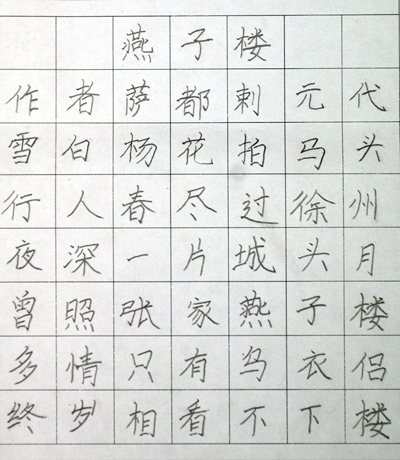 燕子楼
作者萨都剌元代
雪白杨花拍马头
行人春尽过徐州
夜深一片城头月
曾照张家燕子楼
多情只有乌衣侣
终岁相看不下楼